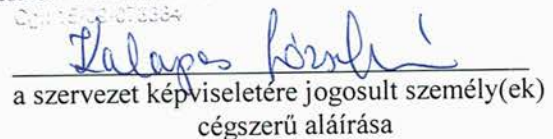 Kalapos József
a szervezet képviseletére jogosult személy(ek)
cégszerű aláírása